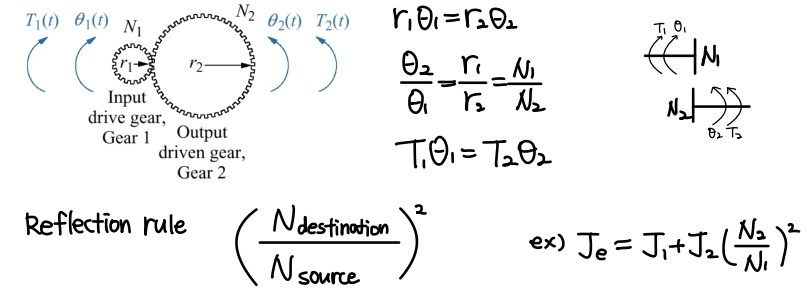 T₁(t) θ₁(t) N₁ N₂ θ₂(t) T₂(t)
r₁ r₂
Input
drive gear,
Gear 1
Output
driven gear,
Gear 2
r₁θ₁=r₂θ₂
θ₂/θ₁=r₁/r₂=N₁/N₂
T₁θ₁=T₂θ₂
T₁ θ₁
N₁
N₂
θ₂ T₂
Reflection rule (N destination / N source)²
ex) Je = J₁+J₂(N₂/N₁)²